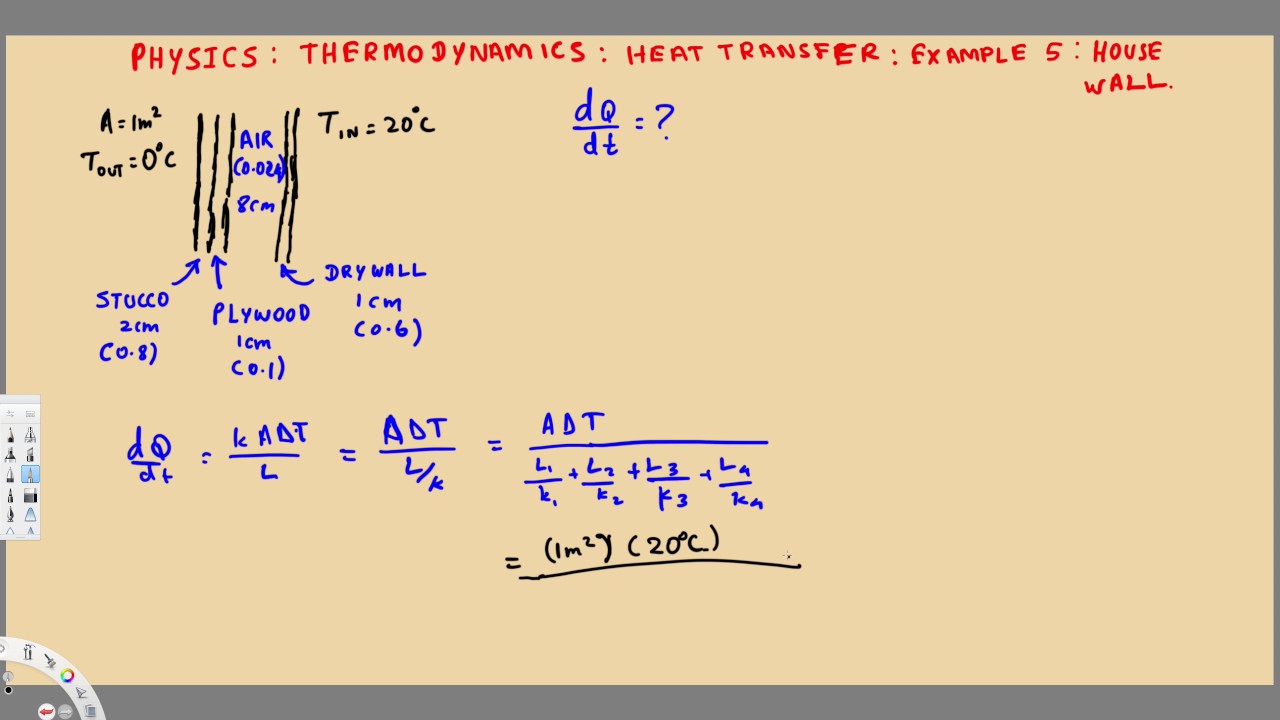 PHYSICS: THERMODYNAMICS: HEAT TRANSFER: EXAMPLE 5: HOUSE
WALL.
A = 1m²
T_OUT = 0°C
AIR
(0.024)
8cm
T_IN = 20°C
dQ/dt = ?
STUCCO
2cm
(0.8)
PLYWOOD
1cm
(0.1)
DRYWALL
1cm
(0.6)
dQ/dt = kAΔT/L = AΔT/(L/k) = AΔT/(L₁/k₁ + L₂/k₂ + L₃/k₃ + L₄/k₄)
= (1m²) (20°C)